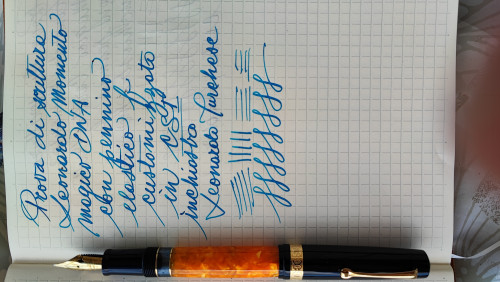 Prova di scrittura
Leonardo Momento
magico DNA
con pennino
elastico F
customizzato
in CSI
inchiostro
Leonardo Turchese